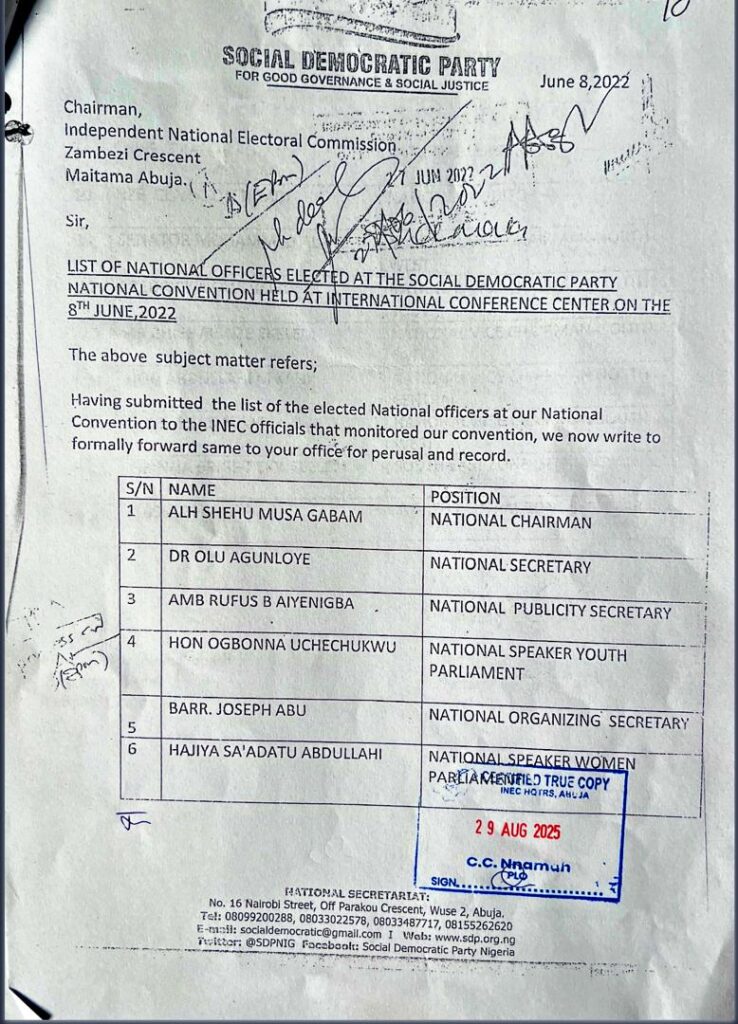 10
SOCIAL DEMOCRATIC PARTY
FOR GOOD GOVERNANCE & SOCIAL JUSTICE
June 8,2022
Chairman,
Independent National Electoral Commission
Zambezi Crescent
Maitama Abuja.
(EPM)
21 JUN 2022
Sir,
LIST OF NATIONAL OFFICERS ELECTED AT THE SOCIAL DEMOCRATIC PARTY
NATIONAL CONVENTION HELD AT INTERNATIONAL CONFERENCE CENTER ON THE
8TH JUNE,2022
The above subject matter refers;
Having submitted the list of the elected National officers at our National
Convention to the INEC officials that monitored our convention, we now write to
formally forward same to your office for perusal and record.
S/N NAME POSITION
1 ALH SHEHU MUSA GABAM NATIONAL CHAIRMAN
2 DR OLU AGUNLOYE NATIONAL SECRETARY
3 AMB RUFUS B AIYENIGBA NATIONAL PUBLICITY SECRETARY
4 HON OGBONNA UCHECHUKWU NATIONAL SPEAKER YOUTH
PARLIAMENT
(EPM)
5 BARR. JOSEPH ABU NATIONAL ORGANIZING SECRETARY
6 HAJIYA SA'ADATU ABDULLAHI NATIONAL SPEAKER WOMEN
PARLIAMENT
CERTIFIED TRUE COPY
INEC HQTRS, ABUJA
29 AUG 2025
C.C. Nnamuh
PLO
SIGN
NATIONAL SECRETARIAT:
No. 16 Nairobi Street, Off Parakou Crescent, Wuse 2, Abuja.
Tel: 08099200288, 08033022578, 08033487717, 08155262620
E-mail: socialdemocratic@gmail.com I Web: www.sdp.org.ng
Twitter: @SDPNIG Facebook: Social Democratic Party Nigeria